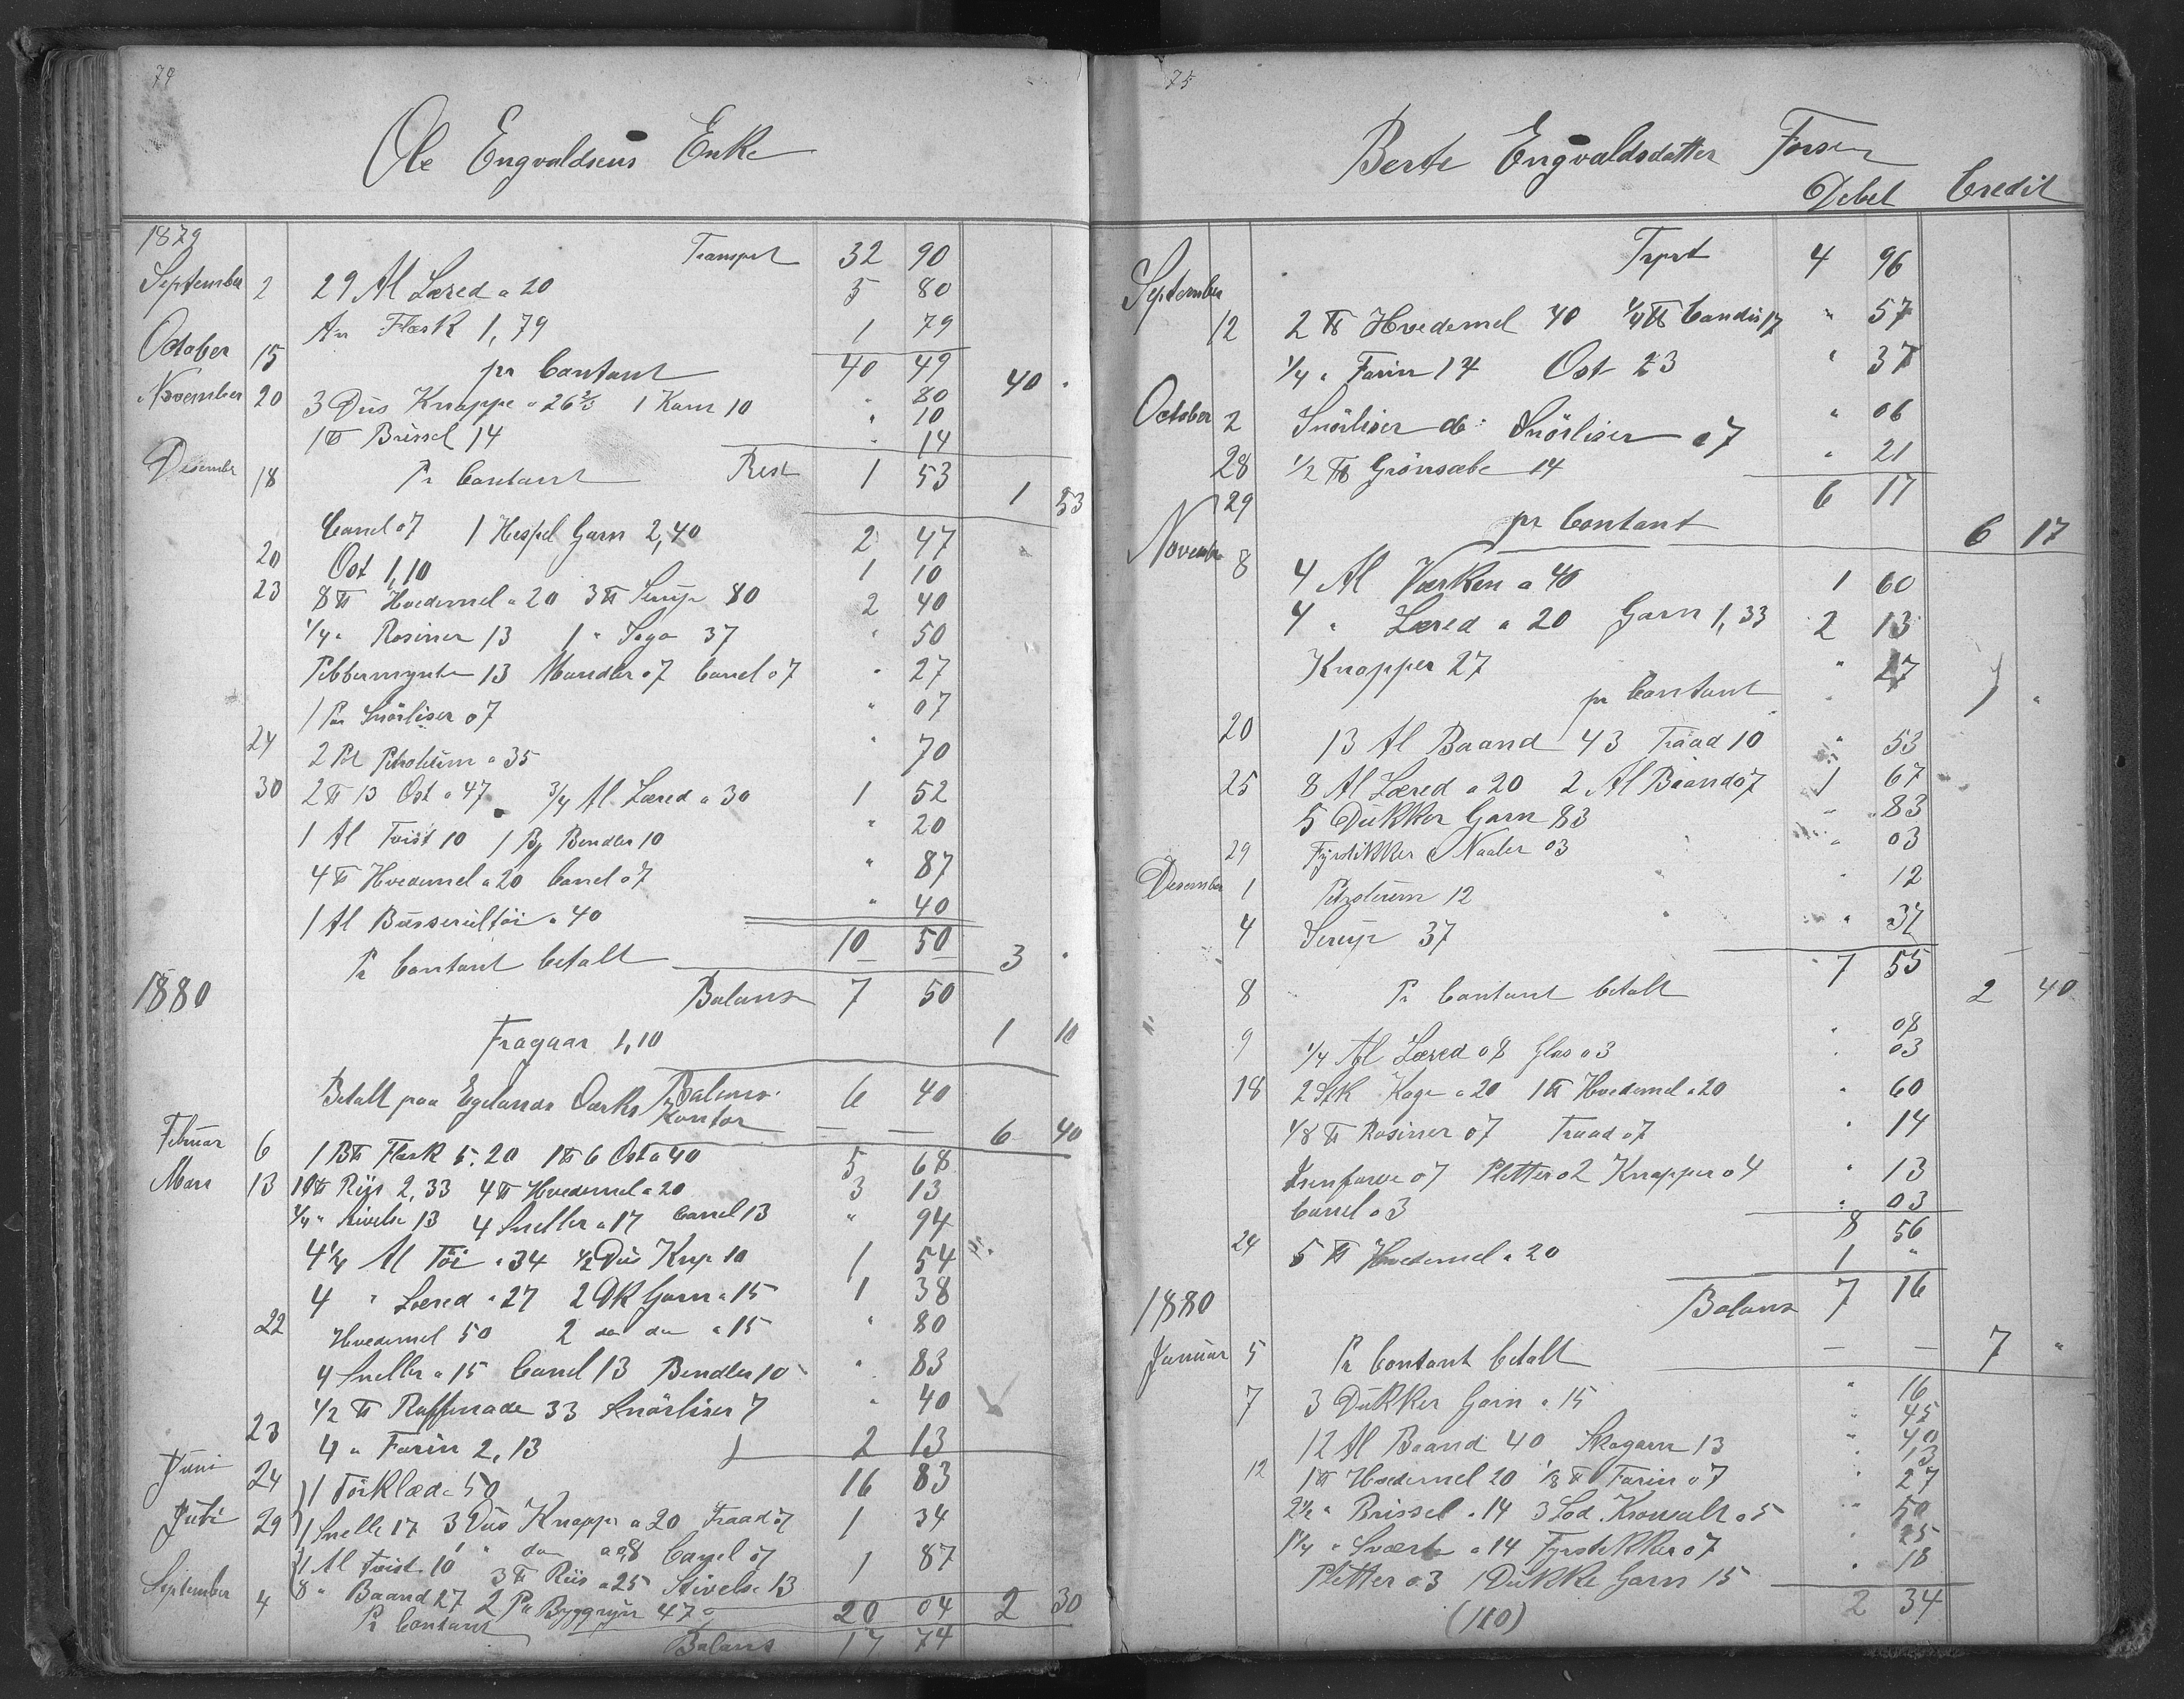 74
Ole Engvaldsens Enke
1879
Transprt 32 90
September 2 29 Al Læred a 20 5 80
An Flæsk 1,79 1 79
October 15 pr Contant 40 49 40 "
November 20 3 Dus Knappe a 26 2/3 1 Kam 10 " 80
" 10
1 ℔ Brissel 14 " 14
Desember 18 Pr Contant Rest 1 53 1 53
Canel 07 1 Hespel Garn 2,40 2 47
20 Ost 1,10 1 10
23 8 ℔ Hvedemel a 20 3 ℔ Sirup 80 2 40
1/4 " Rosiner 13 1 " Sago 37 " 50
Pebbermynte 13 Mandler 07 Canel 07 " 27
1 Par Snörliser 07 " 07
24 2 Pt Petroleum a 35 " 70
30 2 ℔ 13 Ost a 47 3/4 Al Læred a 30 1 52
1 Al Tvist 10 1 Bg Bendler 10 " 20
4 ℔ Hvedemel a 20 Canel 07 " 87
1 Al Busserultöi a 40 " 40
10 50
Pr Contant betalt 3 "
1880 Balans 7 50
Fragaar 1,10 1 10
Balans 6 40
Betalt paa Egelands Værks Kontor — — 6 40
Februar 6 1 B℔ Flæsk 5.20 1 ℔ 6 Ost a 40 5 68
Mars 13 10 ℔ Riis 2,33 4 ℔ Hvedemel a 20 3 13
1/4 " Stivelse 13 4 Sneller a 17 Canel 13 " 94
4 1/4 Al Töi a 34 1/2 Dus Knp 10 1 54
4 " Læred a 27 2 Dk Garn a 15 1 38
22 Hvedemel 50 2 do do a 15 " 80
4 Sneller a 15 Canel 13 Bendler 10 " 83
1/2 ℔ Raffinade 33 Snörliser 7 " 40
23 4 " Farin 2,13 2 13
Juni 24 1 Törklæde 50 16 83
Juli 29 1 Snelle 17 3 Dus Knapper a 20 Traad 07 1 34
1 " do a 08 Canel 07
1 Al Tvist 10 3 ℔ Riis a 25 Stivelse 13 1 87
September 4 8 " Baand 27 2 Pt Byggryn 47
Pr Contant 20 04 2 30
Balans 17 74
75
Berte Engvaldsdatter Forsen
Debet Credit
Trprt 4 96
September 12 2 ℔ Hvedemel 40 1/4 ℔ Candis 17 " 57
1/4 " Farin 14 Ost 23 " 37
October 2 Snörliser do Snörliser 07 " 06
28 1/2 ℔ Grönsæbe 14 " 21
29 6 17
pr Contant 6 17
November 8 4 Al Værken a 40 1 60
4 " Læred a 20 Garn 1,33 2 13
Knapper 27 " 27
pr Contant "
20 13 Al Baand 43 Traad 10 " 53
25 8 Al Læred a 20 2 Al Baand 07 1 67
5 Dukker Garn 83 " 83
29 Fyrstikker Naaler 03 " 03
Desember 1 Petroleum 12 " 12
4 Sirup 37 " 37
7 55
8 Pr Contant betalt 2 40
9 1/4 Al Læred 08 Glas 03 " 08
" 03
18 2 Stk Kage a 20 1 ℔ Hvedemel a 20 " 60
1/8 ℔ Rosiner 07 Traad 07 " 14
07 Pletter 02 Knapper 04 " 13
Canel 03 " 03
8 56
24 5 ℔ Hvedemel a 20 1 "
1880 Balans 7 16
Januar 5 Pr Contant betalt — — 7 "
7 3 Dukker Garn a 15 " 16
" 45
12 Al Baand 40 Skogarn 13 " 40
" 13
12 1 ℔ Hvedemel 20 1/8 ℔ Farin 07 " 27
2 1/2 " Brissel a 14 3 Lod a 5 " 50
1 1/4 " Sværte a 14 Fyrstikker 07 " 25
Pletter 03 1 Dukke Garn 15 " 18
(110) 2 34